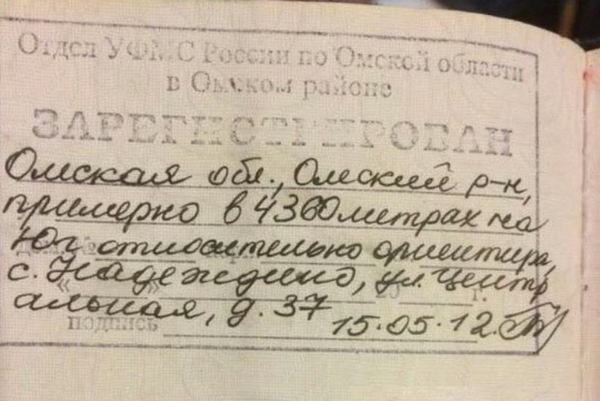 Отдел УФМС России по Омской области
в Омском районе
ЗАРЕГИСТРИРОВАН
Омская обл., Омский р-н,
примерно в 4360 метрах на
Юг относительно ориентира,
с. Надеждино, ул. Центр
« » г.
альная, д. 37
подпись 15.05.12